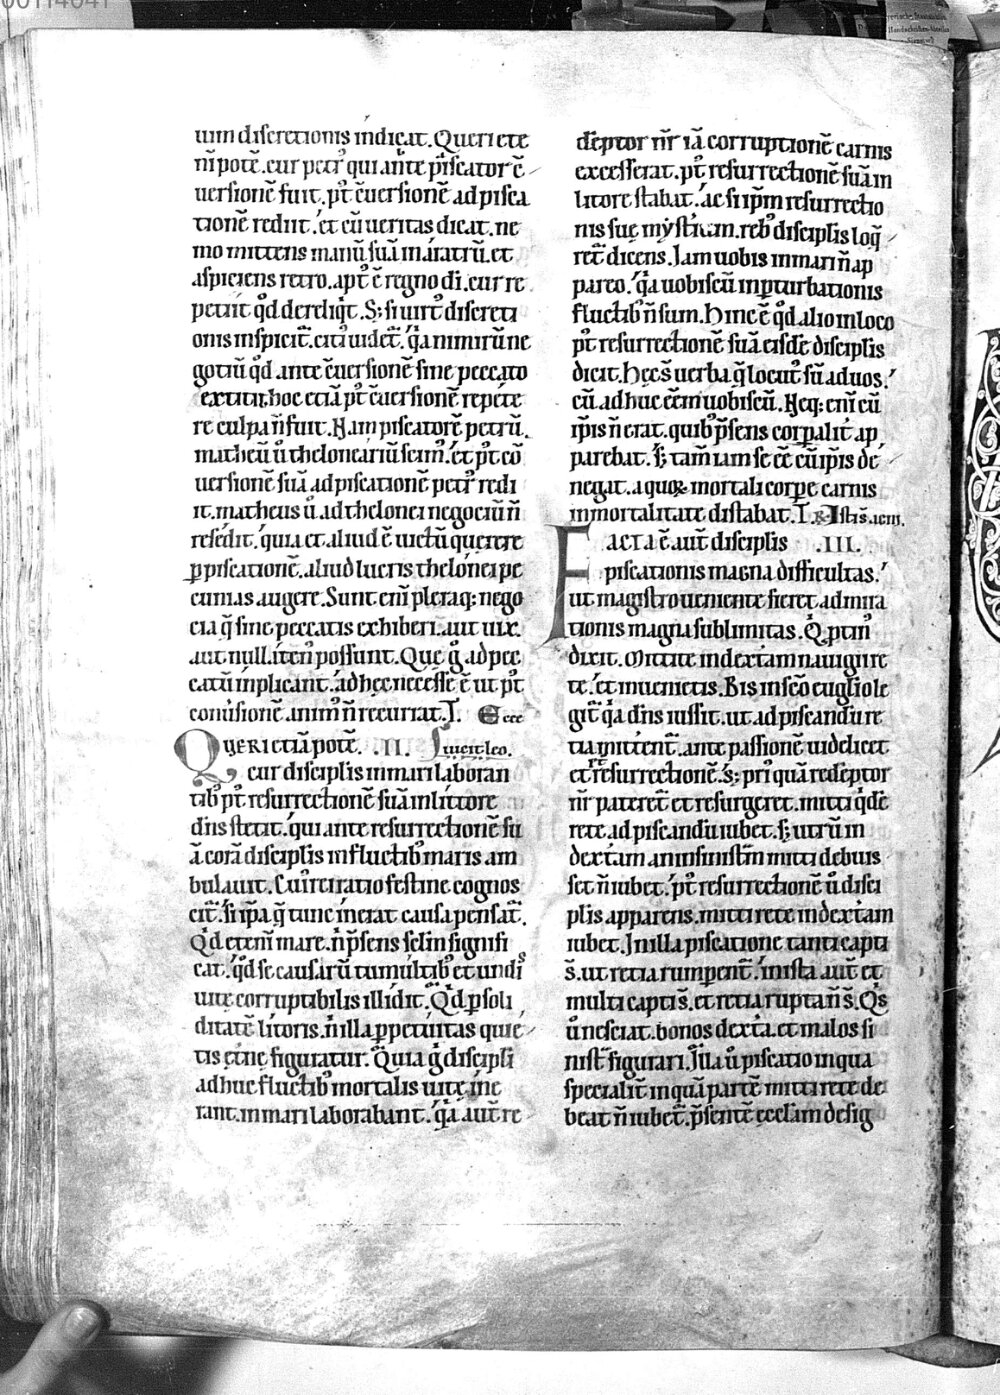 uim discretionis indicat. Queri etē
ni pōt. cur petr᷒ qui ante piscator ē
uersionē fuit. p̄t c̄uersionē ad pisca
tionē rediit. et cū ueritas dicat. ne
mo mittens manū suā in aratrū. et
aspiciens retro. apt᷒ ē regno di. cur re
petiit qd̄ dereliq̇t. S; si uirt᷒ discreti
onis inspicit᷑. citi᷒ uidet᷑. q̇a nimirū ne
gotiū qd̄ ante c̄uersionē sine peccato
extitit. hoc etiā p̄t c̄uersionē repete
re culpa n̄ fuit. Nam piscatorē petrū.
matheū ů theloneariū scim᷒. et p̄t cō
uersionē suā ad piscationē petr᷒ redi
it. matheus ů ad thelonei negociū n̄
resedit. quia et aliud ē uictū querere
ꝑ piscationē. aliud lucris thelonei pe
cunias augere. Sunt eni pleraq; nego
cia q̄ sine peccatis exhiberi. aut uix.
aut null.iten᷒ possunt. Que g̊ ad pec
catū implicant. ad hec necesse ē ut p̄t
conūsionē. anim᷒ n̄ recurrat. T. Ecce
QUERI ETIĀ POTĒ. .II. Surrit leo.
cur disciplis in mari laboran
tib᷒ p̄t resurrectionē suā in littore
dn̄s stetit. qui ante resurrectionē su
ā corā disciplis in fluctib᷒ maris am
bulauit. Cui᷒ rei ratio festine cognos
cit᷑. si ipa q̄ tunc inerat causa pensat᷑.
Qd̄ eteni mare. n̄ p̄sens sclm signifi
cat. qd̄ se causarū tumultib᷒ et undis
uite corruptibilis illidit. Qd̄ p soli
ditatē litoris. n̄ illa ppetuitas quie
tis etne figuratur. Quia g̊ discipli
adhuc fluctib᷒ mortalis uite ine
rant. in mari laborabant. q̇a aut re
dēptor nr̄ iā corruptionē carnis
excesserat. p̄t resurrectionē suā in
litore stabat. ac si ipm resurrectio
nis sue mysterium. reb᷒ disciplis loq̄
ret᷑ dicens. Jam uobis in mari n̄ ap
pareo. q̇a uobiscū in ꝑturbationis
fluctib᷒ n̄ sum. Hinc ē qd̄ alio in loco
p̄t resurrectionē suā eisdē disciplis
dicit. Hec s̄ uerba q̄ locut᷒ sū ad uos.
cū adhuc eēm uobiscū. Neq; eni cū
ipis n̄ erat. quib᷒ p̄sens corpalit᷑ ap
parebat. S; tam̄ iam se eē cū ipis de
negat. a quoꝝ mortali corpe carnis
inmortalitate distabat. T. R. Jstis s̄. aeni.
FACTA ē aut disciplis .III.
piscationis magna difficultas.
ut magistro ueniente fieret admira
tionis magna sublimitas. Q ptin᷒
dixit. Mittite in dexteram nauigii re
te. et inuenietis. Bis in scō euglio le
git᷑ q̇a dn̄s iussit. ut ad piscandū re
tia mittent᷑. ante passionē uidelicet
et resurrectionē. s; pri᷒quā redēptor
nr̄ pateret᷑ et resurgeret. mitti q̇dē
rete ad piscandū iubet. S; utrum in
dextam an in sinistm mitti debuis
set n̄ iubet. p̄t resurrectionē ů disci
plis apparens. mitti rete in dextam
iubet. Jn illa piscatione tanti capti
s̄. ut retia rumpent᷑. in ista aut et
multi capti s̄. et retia rupta n̄ s̄. Q̄s
ů nesciat. bonos dexta. et malos si
nist᷑ figurari. Jlla ů piscatio in qua
specialit᷑ in quā partē mitti rete de
beat n̄ iubet᷑. p̄sentē ecclam desig